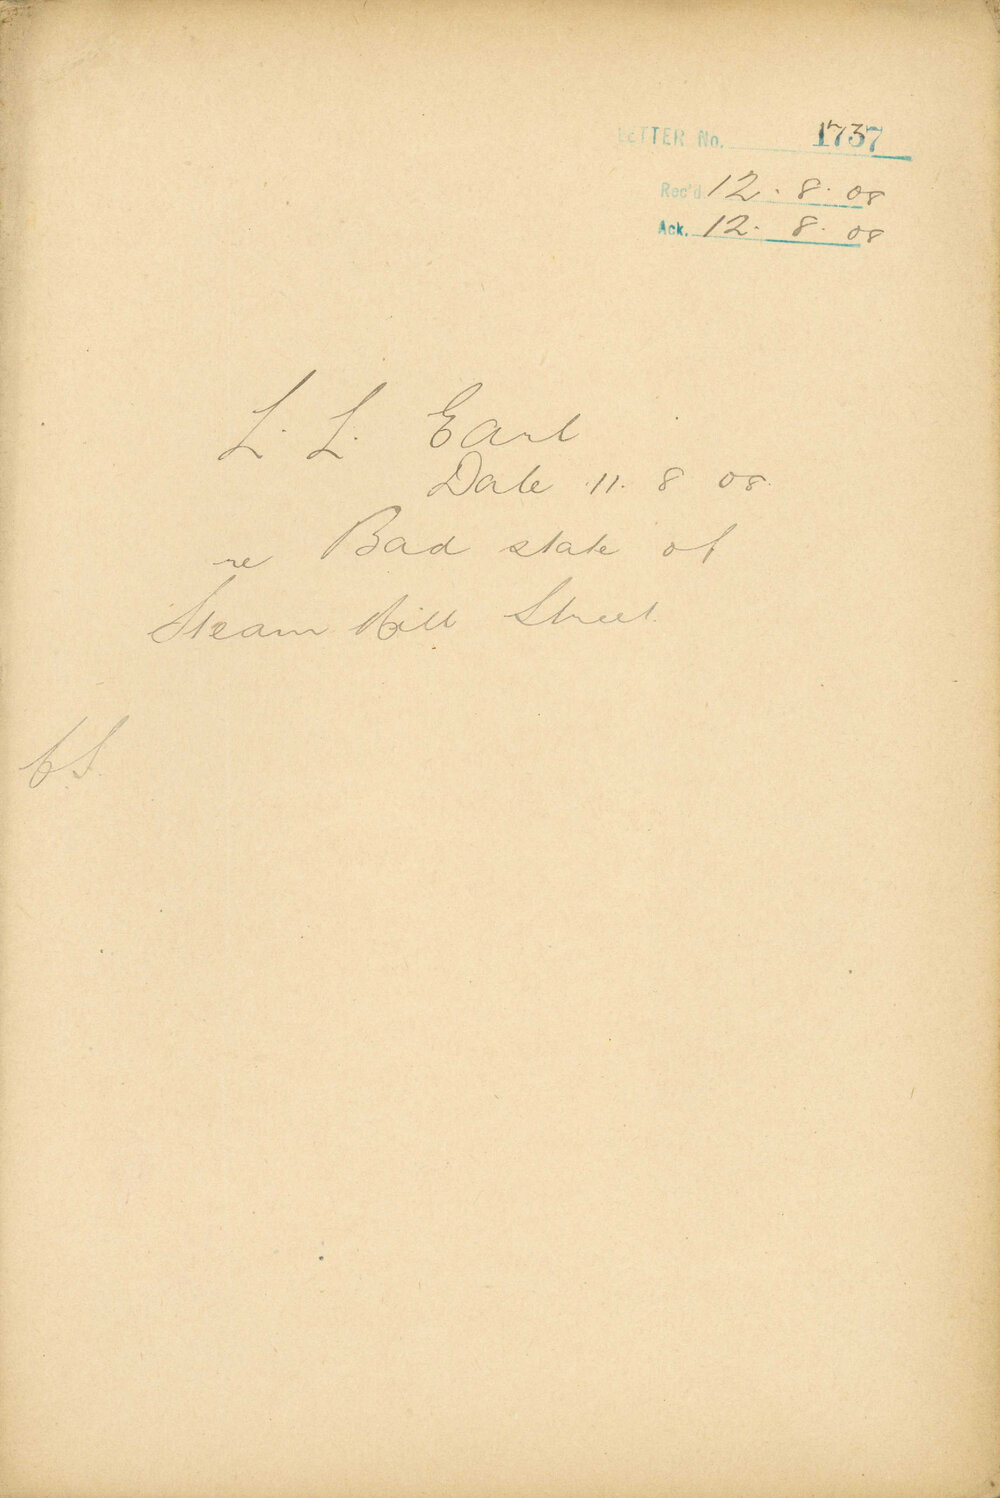 LETTER No. 1737
Rec'd 12. 8. 08
Ack. 12. 8. 08
L. L. Earl
Date 11. 8 08.
re Bad state of
Steam Mill Street.